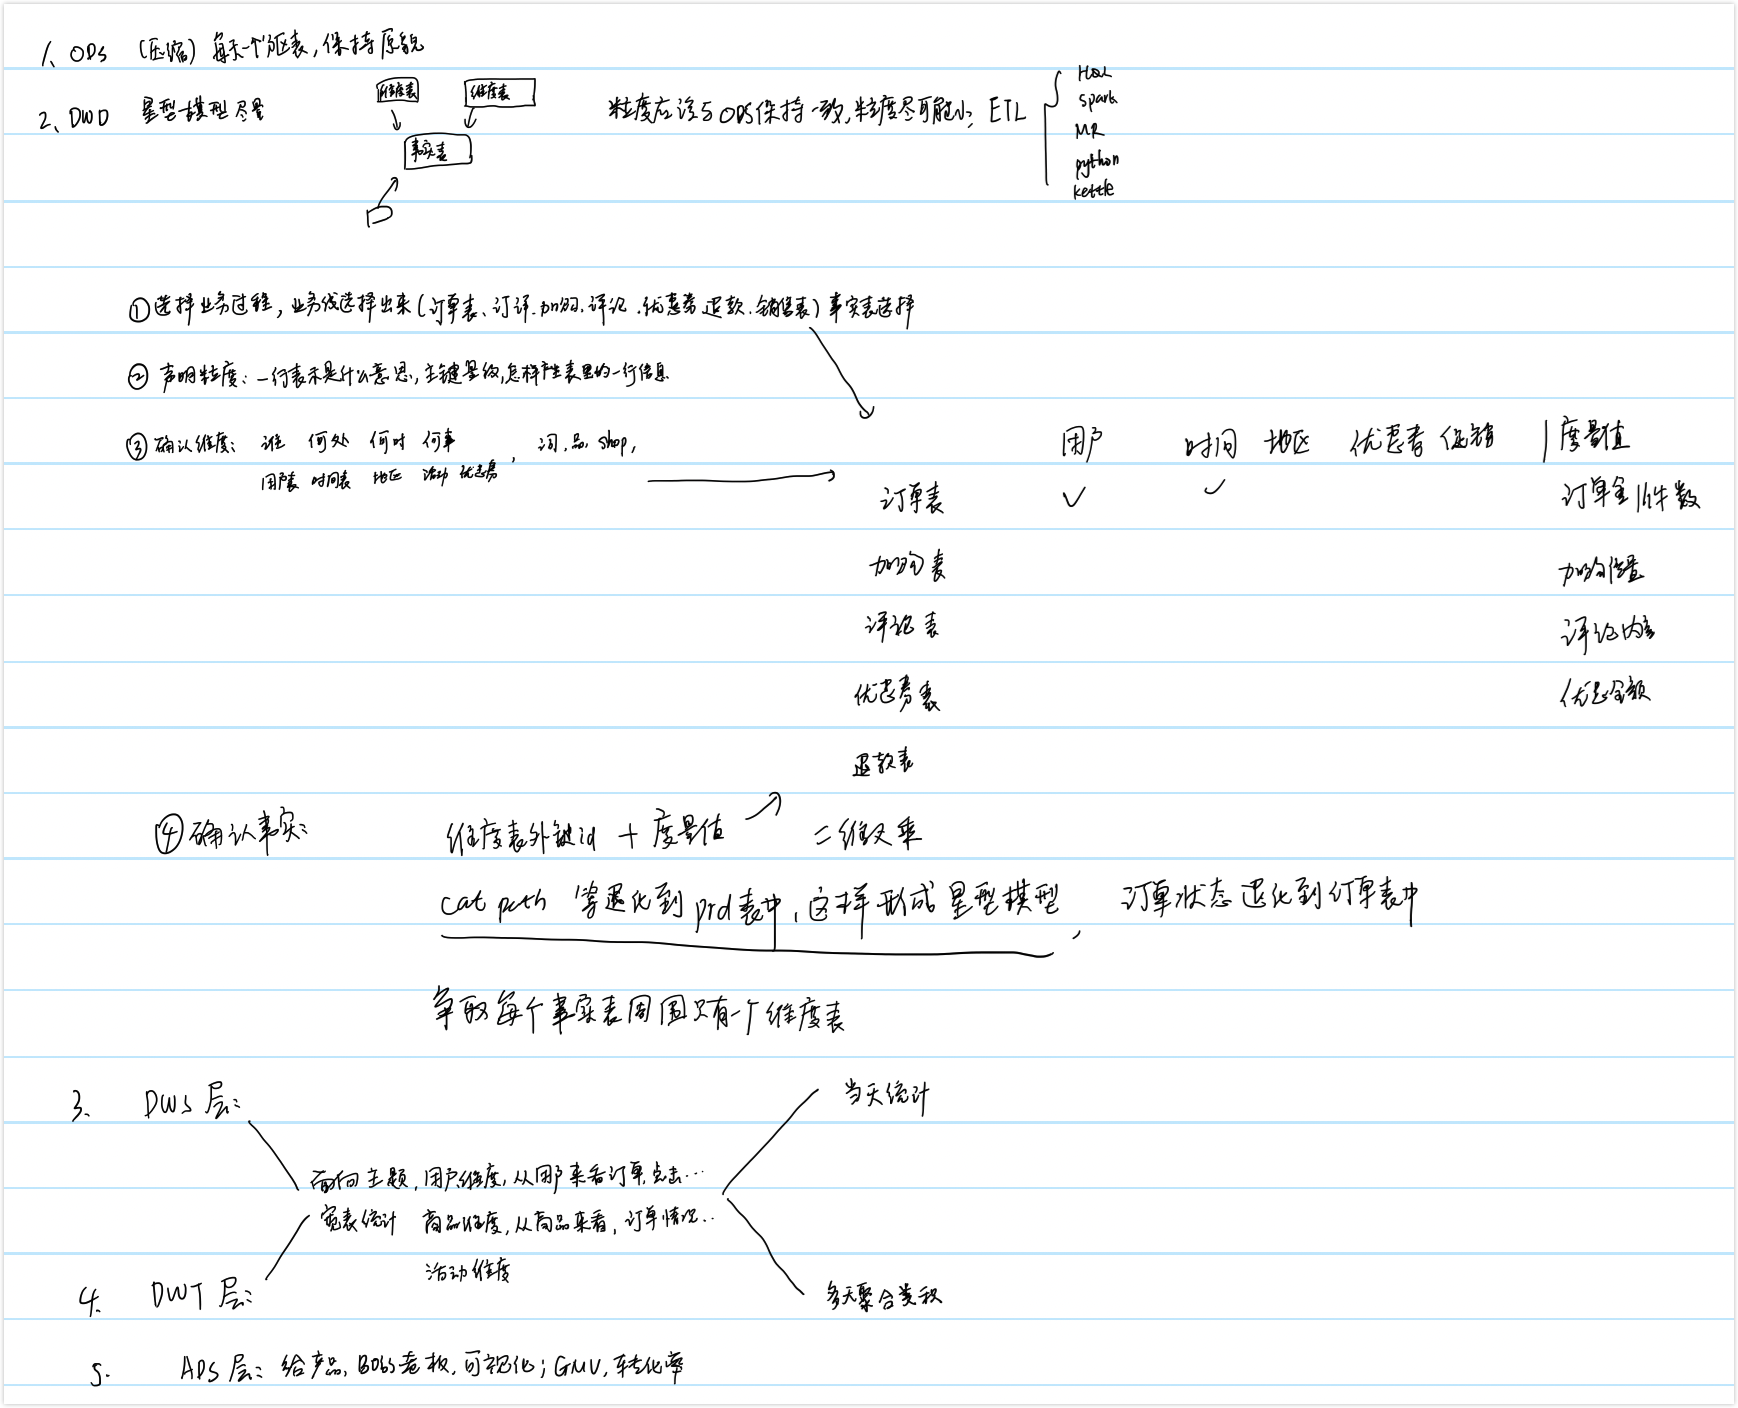 1、ODS （压缩）每天一个分区表，保持原貌
2、DWD 星型模型尽量
维度表 维度表
事实表
粒度应该与ODS保持一致，粒度尽可能小，ETL
HQL
spark
MR
python
kettle
①选择业务过程，业务线选择出来（订单表、订详、加购、评论、优惠券、退款、销售表）事实表选择
② 声明粒度：一行表示是什么意思，主键是谁，怎样产生表里的一行信息
③ 确认维度： 谁 何处 何时 何事 ， 词，品，shop，
用户表 时间表 地区 活动 优惠券
用户 时间 地区 优惠券 促销 | 度量值
订单表 ✓ ✓ 订单金 | 件数
加购表 加购位置
评论表 评论内容
优惠券表 优惠金额
退款表
④确认事实： 维度表外键id + 度量值 二维叉乘
cat path 等退化到prd表中，这样形成星型模型， 订单状态退化到订单表中
争取每个事实表周围只有一个维度表
3、 DWS 层： 当天统计
面向主题，用户维度，从用户来看订单，点击…
宽表统计 商品维度，从商品来看，订单情况..
活动维度
4、 DWT 层： 多天聚合类积
5. ADS 层：给产品，BOSS老板，可视化；GMV，转化率